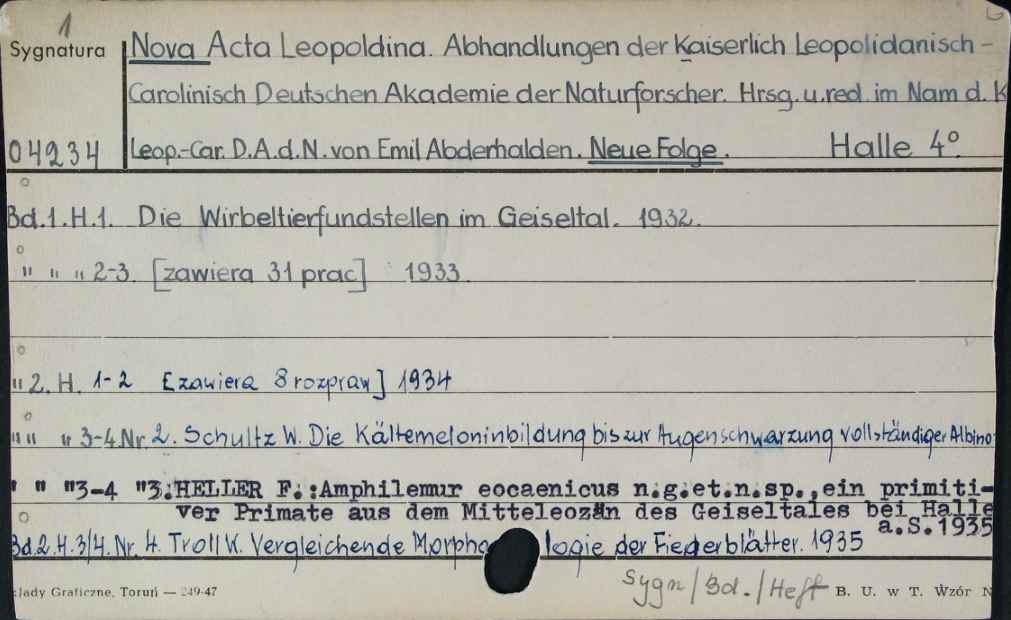 1
Sygnatura
Nova Acta Leopoldina. Abhandlungen der Kaiserlich Leopolidanisch-
Carolinisch Deutschen Akademie der Naturforscher. Hrsg. u. red. im Nam d. K
04234
Leop.-Car. D.A.d.N. von Emil Abderhalden. Neue Folge. Halle 4°.
Bd.1.H.1. Die Wirbeltierfundstellen im Geiseltal. 1932.
" " " 2-3. [zawiera 31 prac] 1933.
" 2. H. 1-2 [zawiera 8 rozpraw] 1934
" " " 3-4.Nr.2. Schultz W. Die Kältemeloninbildung bis zur Augenschwarzung vollständiger Albino
" " "3-4 "3.HELLER F.:Amphilemur eocaenicus n.g.et.n.sp.,ein primiti-
ver Primate aus dem Mitteleozän des Geiseltales bei Halle
a.S.1935
Bd.2.H.3/4.Nr.4. Troll W. Vergleichende Morphologie der Fiederblätter. 1935
Sygn/Bd./Heft
łady Graficzne, Toruń — 249-47
B. U. w T. Wzór N